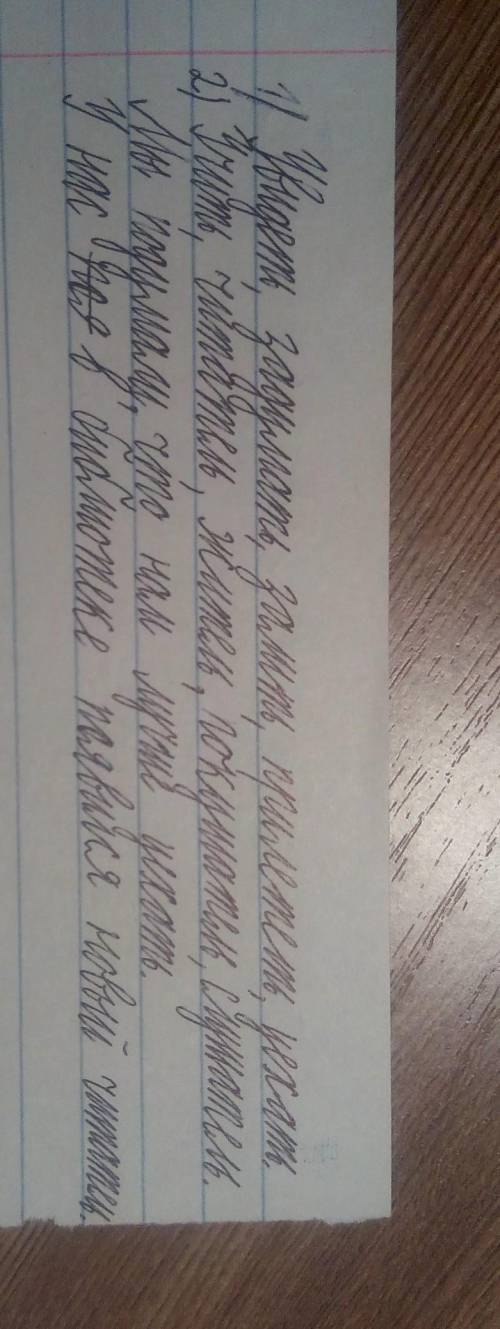 1) Увидеть, задумать, залить, прилететь, уехать.
2) Учить, читатель, житель, покупатель, слушатель.
Мы подумали, что нам лучше уехать.
У нас в библиотеке появился новый читатель.